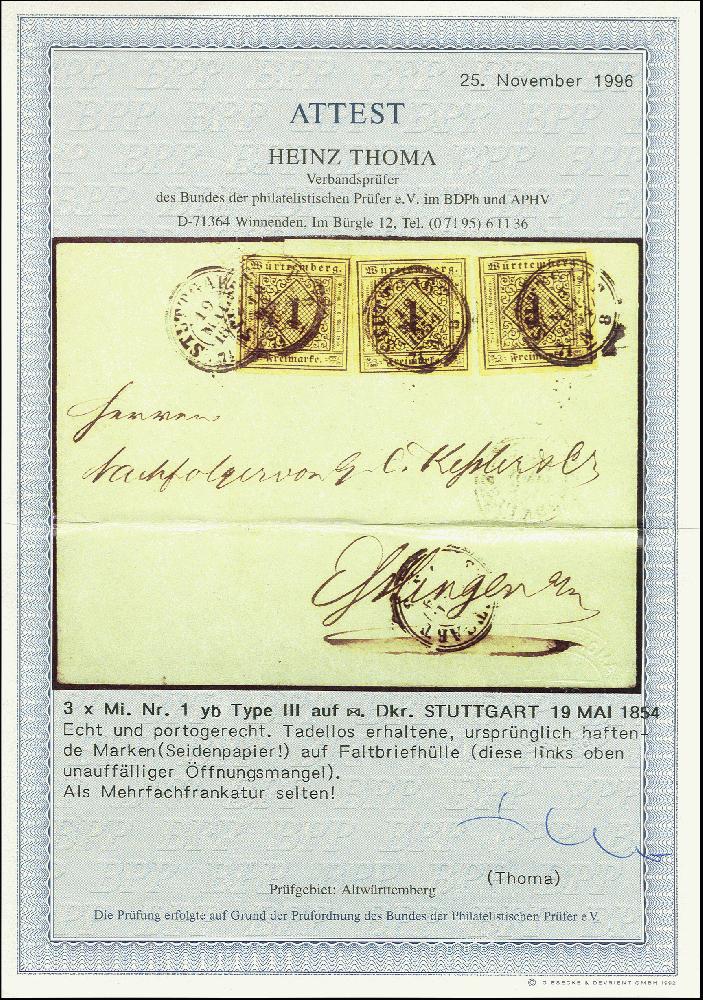 25. November 1996
ATTEST
HEINZ THOMA
Verbandsprüfer
des Bundes der philatelistischen Prüfer e.V. im BDPh und APHV
D-71364 Winnenden, Im Bürgle 12, Tel. (07195) 61136
Württemberg. Württemberg. Württemberg.
1 1 1
Freimarke. Freimarke. Freimarke.
STUTTGART
Herren
Nachfolger von G. C. Kessler & Co
Esslingen a/n
3 x Mi. Nr. 1 yb Type III auf ✉. Dkr. STUTTGART 19 MAI 1854
Echt und portogerecht. Tadellos erhaltene, ursprünglich haften-
de Marken(Seidenpapier!) auf Faltbriefhülle (diese links oben
unauffälliger Öffnungsmangel).
Als Mehrfachfrankatur selten!
(Thoma)
Prüfgebiet: Altwürttemberg
Die Prüfung erfolgte auf Grund der Prüfordnung des Bundes der Philatelistischen Prüfer e.V.
© GIESECKE & DEVRIENT GMBH 1992